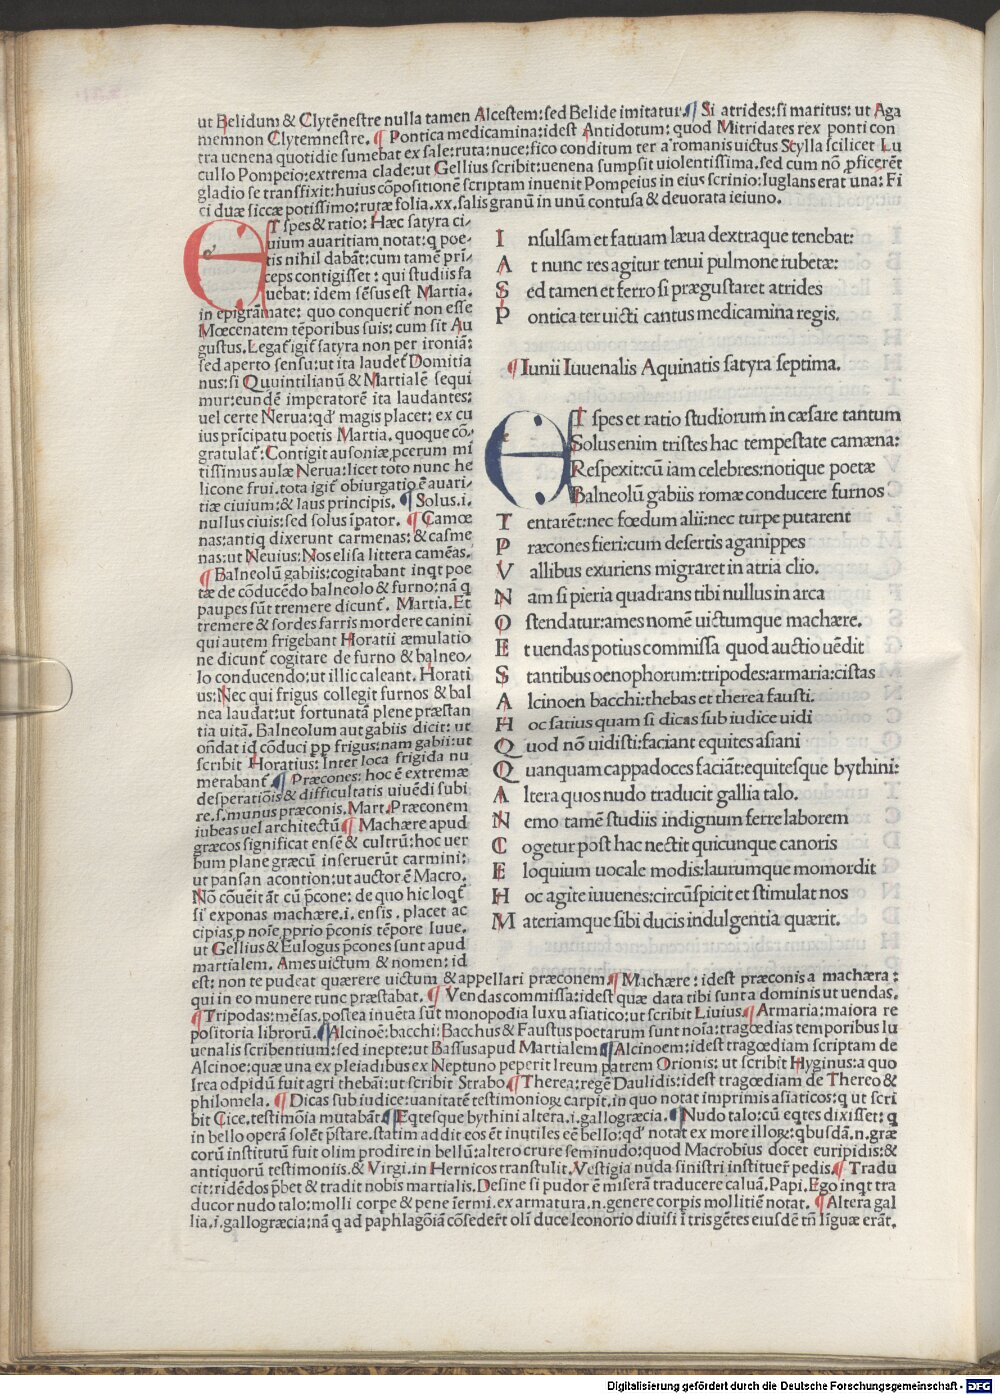 ut Belidum & Clytēnestre nulla tamen Alcestem: sed Belide imitatur. ¶ Si atrides: si maritus: ut Aga
memnon Clytemnestre. ¶ Pontica medicamina: idest Antidotum: quod Mitridates rex ponti con
tra uenena quotidie sumebat ex sale: ruta: nuce: fico conditum ter a romanis uictus Sylla scilicet Lu
cullo Pompeio: extrema clade: ut Gellius scribit: uenena sumpsit uiolentissima. sed cum nō ꝑficerēt
gladio se transfixit: huius cōpositionē scriptam inuenit Pompeius in eius scrinio: Iuglans erat una: Fi
ci duæ siccæ potissimo: rutæ folia .xx. salis granū in unū contusa & deuorata ieiuno.
ET spes & ratio: Hæc satyra ci/
uium auaritiam notat: q poe/
tis nihil dabāt: cum tamē prī/
ceps contigisset: qui studiis fa
uebat: idem sēsus est Martia.
in epigrāmate: quo conquerit̄ non esse
Mœcenatem tēporibus suis: cum sit Au
gustus. Legat̄ igit̄ satyra non per ironiā:
sed aperto sensu: ut ita laudet̄ Domitia
nus: si Quuintilianū & Martialē sequi
mur: eundē imperatorē ita laudantes:
uel certe Nerua: qd' magis placet: ex cu
ius prīcipatu poetis Martia. quoque cō/
gratulat̄: Contigit ausoniæ ꝓcerum mi
tissimus aulæ Nerua: licet toto nunc he
licone frui. tota igit̄ obiurgatio ē auari/
tiæ ciuium: & laus principis. ¶ Solus .i.
nullus ciuis: sed solus īpator. ¶ Camœ
nas: antiq dixerunt carmenas: & casme
nas: ut Neuius: Nos elisa littera camēas.
¶ Balneolū gabiis: cogitabant inqt poe
tæ de cōducēdo balneolo & furno: nā q
paupes sūt tremere dicunt̄. Martia. Et
tremere & sordes farris mordere canini
qui autem frigebant Horatii æmulatio
ne dicunt̄ cogitare de furno & balneo/
lo conducendo: ut illic caleant. Horati
us: Nec qui frigus collegit furnos & bal
nea laudat: ut fortunatā plene præstan
tia uitā. Balneolum aut gabiis dicit: ut
oñdat id cōduci ꝓp frigus: nam gabii: ut
scribit Horatius: Inter loca frigida nu
merabant̄. ¶ Præcones: hoc ē extremæ
desperatiōis & difficultatis uiuēdi subi
re. s. munus præconis. Mart. Præconem
iubeas uel architectū ¶ Machære apud
græcos significat ensē & cultrū: hoc uer
bum plane græcū inseruerūt carmini:
ut pansan acontion: ut auctor ē Macro.
Nō cōueīt āt cū p̄cone: de quo hic loqt̄
si exponas machære .i. ensis. placet ac
cipias p noīe ꝓprio p̄conis tēpore Iuue.
ut Gellius & Eulogus p̄cones sunt apud
martialem. Ames uictum & nomen: id
est: non te pudeat quærere uictum & appellari præconem. ¶ Machære: idest præconis a machæra:
qui in eo munere tunc præstabat. ¶ Vendas commissa: idest quæ data tibi sunt a dominis ut uendas.
¶ Tripodas: mēsas. postea inuēta sūt monopodia luxu asiatico: ut scribit Liuius. ¶ Armaria: maiora re
positoria librorū. ¶ Alcinoē: bacchi: Bacchus & Faustus poetarum sunt noīa: tragœdias temporibus Iu
uenalis scribentium: sed inepte: ut Bassus apud Martialem ¶ Alcinoem: idest tragœdiam scriptam de
Alcinoe: quæ una ex pleiadibus ex Neptuno peperit Ireum patrem Orionis: ut scribit Hyginus: a quo
Irea odpidū fuit agri thebāi: ut scribit Strabo. ¶ Therea: regē Daulidis: idest tragœdiam de Thereo &
philomela. ¶ Dicas sub iudice: uanitatē testimonioꝝ carpit. in quo notat imprimis asiaticos: q ut scri
bit Cice. testimōia mutabāt. ¶ Eqtesque bythini altera .i. gallogræcia. ¶ Nudo talo: cū eqtes dixisset: q
in bello operā solēt p̄stare. statim addit eos ēt inutiles eē bello: qd' notat ex more illoꝝ: q busdā .n. græ
corū institutū fuit olim prodire in bellū: altero crure seminudo: quod Macrobius docet euripidis: &
antiquorū testimoniis. & Virgi. in Hernicos transtulit. Vestigia nuda sinistri instituere pedis. ¶ Tradu
cit: ridēdos p̄bet & tradit nobis martialis. Desine si pudor ē miserā traducere caluā. Papi. Ego inqt tra
ducor nudo talo: molli corpe & pene iermi. ex armatura .n. genere corpis mollitiē notat. ¶ Altera gal
lia .i. gallogræcia: nā q ad paphlagōiā cōsedert̄ oli duce leonorio diuisi ī tris gētes eiusdē tn̄ līguæ erāt.
I nsulsam et fatuam læua dextraque tenebat:
A t nunc res agitur tenui pulmone rubetæ:
S ed tamen et ferro si prægustaret atrides
P ontica ter uicti cantus medicamina regis.
¶ Iunii Iuuenalis Aquinatis satyra septima.
ET spes et ratio studiorum in cæsare tantum
Solus enim tristes hac tempestate camæna:
Respexit: cū iam celebres: notique poetæ
Balneolū gabiis romæ conducere furnos
T entarēt: nec fœdum alii: nec turpe putarent
P ræcones fieri: cum desertis aganippes
V allibus exuriens migraret in atria clio.
N am si pieria quadrans tibi nullus in arca
O stendatur: ames nomē uictumque machære.
E t uendas potius commissa quod auctio uēdit
S tantibus oenophorum: tripodes: armaria: cistas
A lcinoen bacchi: thebas et therea fausti.
H oc satius quam si dicas sub iudice uidi
Q uod nō uidisti: faciant equites asiani
Q uanquam cappadoces faciāt: equitesque bythini:
A ltera quos nudo traducit gallia talo.
N emo tamē studiis indignum ferre laborem
C ogetur post hac nectit quicunque canoris
E loquium uocale modis: laurumque momordit
H oc agite iuuenes: circūspicit et stimulat nos
M ateriamque sibi ducis indulgentia quærit.
Digitalisierung gefördert durch die Deutsche Forschungsgemeinschaft - DFG